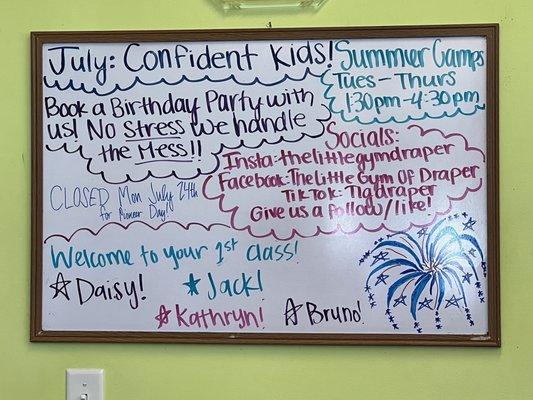 July: Confident Kids!
Summer Camps
Tues - Thurs
1:30pm-4:30pm
Book a Birthday Party with
us! No stress we handle
the Mess!!
Socials:
Insta: thelittlegymdraper
Facebook: The Little Gym Of Draper
TikTok: Tlgdraper
Give us a follow/like!
CLOSED Mon July 24th
for Pioneer Day!
Welcome to your 1st class!
Daisy!
Jack!
Kathryn!
Bruno!